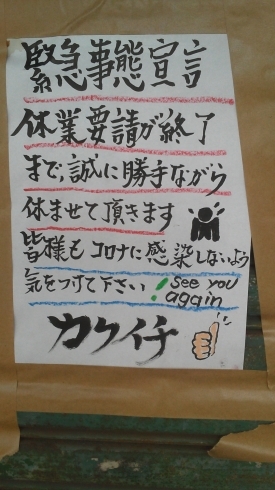 緊急事態宣言
休業要請が終了
まで、誠に勝手ながら
休ませて頂きます
皆様もコロナに感染しないよう
気をつけて下さい! see you
again
カクイチ